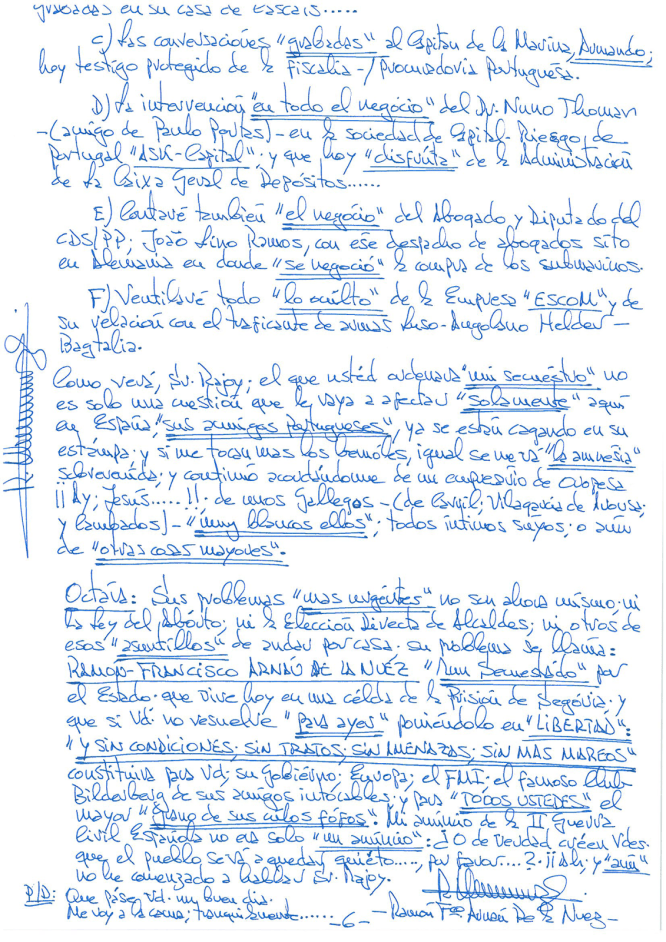 grabadas en su casa de Cascais.....
C) Las conversaciones "grabadas" al Capitan de la Marina, Armando;
hoy testigo protegido de la Fiscalia-/Procuradoria Portuguesa.
D) La intervención "en todo el negocio" del Dr. Nuno Thomar
-(amigo de Paulo Portas)- en la sociedad de Capital-Riesgo, de
Portugal "ASK-Capital"; y que hoy "disfruta" de la Administración
de la Caixa Geral de Depósitos......
E) Contaré también "el negocio" del Abogado y Diputado del
CDS/PP; João Lino Ramos, con ese despacho de abogados sito
en Alemania en donde "se negoció" la compra de los submarinos.
F) Ventilaré todo "lo oculto" de la Empresa "ESCOM" y de
su relación con el traficante de armas Luso-Angolano Helder-
Bagtalia.
Como verá, Sr. Rajoy; el que usted ordenara "mi secuestro" no
es solo una cuestión que le vaya a afectar "solamente" aquí
en España, "sus amigos Portugueses", ya se están cagando en su
estampa; y si me tocan mas los bemoles, igual se me va "la amnesia"
sobrevenida; y continuo acordándome de un empresario de
¡¡Ay; Jesús.....!!. de unos Gallegos -(de Carril; Vilagarcia de Arousa;
y Cambados)- "muy blancos ellos"; todos intimos suyos; o aún
de "otras cosas mayores".
Octava: Sus problemas "mas urgentes" no son ahora mismo; ni
la Ley del Abórto; ni la Elección Directa de Alcaldes; ni otros de
esos "asuntillos" de andar por casa. su problema se llama:
RAMON-FRANCISCO ARNAÚ DE LA NUEZ "Un Secuestrado" por
el Estado. que vive hoy en una célda de la Prisión de Segovia; y
que si Vd. no resuelve "para ayer" poniéndolo en "LIBERTAD":
"Y SIN CONDICIONES; SIN TRATOS; SIN AMENAZAS; SIN MAS MAREOS"
constituirá para Vd; su Gobierno; Europa; el FMI; el famoso Club-
Bilderberg de sus amigos intocables; y para "TODOS USTEDES" el
mayor "Grano de sus culos fófos". Mi anúncio de la II Guerra
Civil Española no es solo "un anúncio": ¿O de verdad créen Vdes.
que el pueblo se vá a quedar quiéto...., por favor....?. ¡¡Ah; y "aún"
no he comenzado a hablar Sr. Rajoy.
P/D: Que páse Vd. muy buen dia.
Me voy a la cama; tranquilamente......
-6-
-Ramón Fco Arnaú De la Nuez-